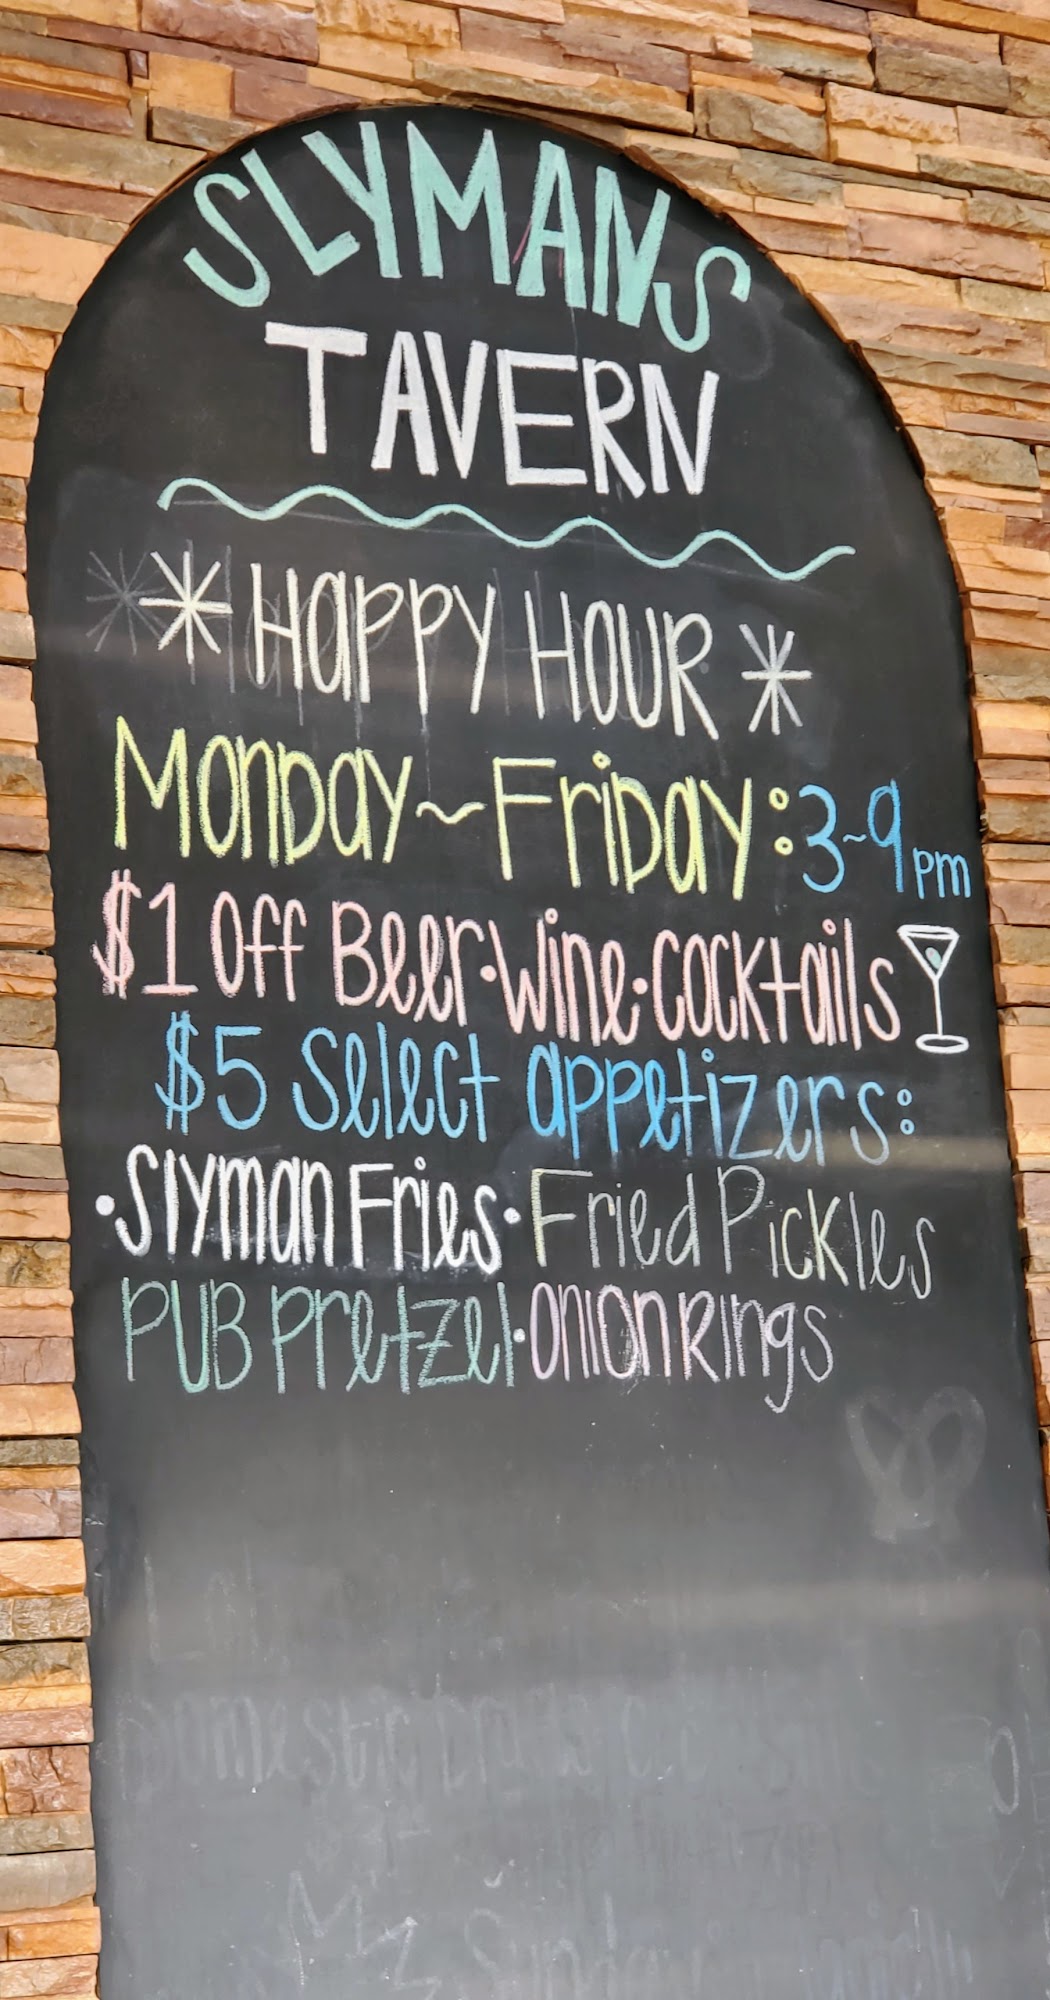 SLYMANS
TAVERN
* HAPPY HOUR *
MONDAY ~ FRIDAY : 3~9 pm
$1 Off Beer • Wine • Cocktails
$5 Select appetizers:
• Slyman Fries • Fried Pickles
PUB Pretzel • Onion Rings